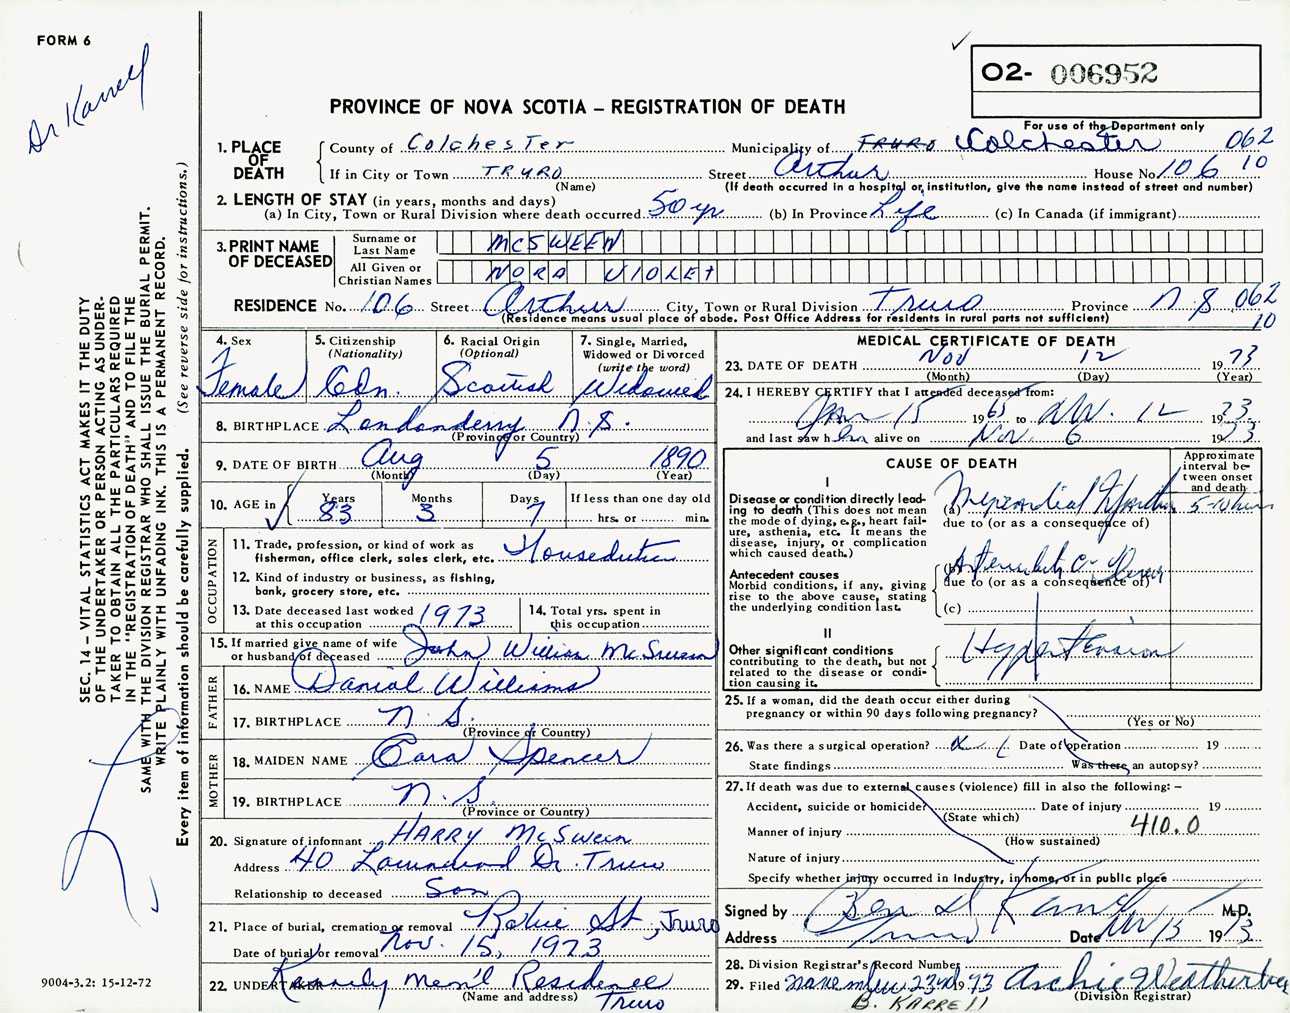 FORM 6
Dr Karrell
O2- 006952
PROVINCE OF NOVA SCOTIA – REGISTRATION OF DEATH
For use of the Department only
1. PLACE OF DEATH
County of Colchester Municipality of Truro Colchester 062
If in City or Town TRURO Street Arthur House No. 106 10
(Name) (If death occurred in a hospital or institution, give the name instead of street and number)
2. LENGTH OF STAY (in years, months and days)
(a) In City, Town or Rural Division where death occurred 50 yr (b) In Province Life (c) In Canada (if immigrant)
3. PRINT NAME OF DECEASED
Surname or Last Name MCSWEEN
All Given or Christian Names NORA VIOLET
RESIDENCE No. 106 Street Arthur City, Town or Rural Division Truro Province N.S. 062
10
(Residence means usual place of abode. Post Office Address for residents in rural parts not sufficient)
4. Sex Female
5. Citizenship (Nationality) Cdn.
6. Racial Origin (Optional) Scottish
7. Single, Married, Widowed or Divorced (write the word) Widowed
8. BIRTHPLACE Londonderry N.S.
(Province or Country)
9. DATE OF BIRTH Aug 5 1890
(Month) (Day) (Year)
10. AGE in Years 83 Months 3 Days 7 If less than one day old
hrs. or min.
OCCUPATION
11. Trade, profession, or kind of work as fisherman, office clerk, sales clerk, etc. Houseduties
12. Kind of industry or business, as fishing, bank, grocery store, etc.
13. Date deceased last worked at this occupation 1973
14. Total yrs. spent in this occupation
15. If married give name of wife or husband of deceased John William McSween
FATHER
16. NAME Danial Williams
17. BIRTHPLACE N.S.
(Province or Country)
MOTHER
18. MAIDEN NAME Cora Spencer
19. BIRTHPLACE N.S.
(Province or Country)
20. Signature of informant HARRY McSwein
Address 40 Dr. Truro
Relationship to deceased Son
21. Place of burial, cremation or removal Robie St, Truro
Date of burial or removal Nov. 15, 1973
22. UNDERTAKER Mem'l Residence
(Name and address) Truro
MEDICAL CERTIFICATE OF DEATH
23. DATE OF DEATH Nov 12 1973
(Month) (Day) (Year)
24. I HEREBY CERTIFY that I attended deceased from:
Jan 15 1965 to Nov. 12 1973
and last saw her alive on Nov. 6 1973
CAUSE OF DEATH
Approximate interval between onset and death
I
Disease or condition directly leading to death (This does not mean the mode of dying, e.g., heart failure, asthenia, etc. It means the disease, injury, or complication which caused death.)
(a) Myocardial Infarction
due to (or as a consequence of)
Antecedent causes
Morbid conditions, if any, giving rise to the above cause, stating the underlying condition last.
(b)
due to (or as a consequence of)
(c)
II
Other significant conditions contributing to the death, but not related to the disease or condition causing it.
Hypertension
25. If a woman, did the death occur either during pregnancy or within 90 days following pregnancy?
(Yes or No)
26. Was there a surgical operation? Date of operation 19
State findings Was there an autopsy?
27. If death was due to external causes (violence) fill in also the following: –
Accident, suicide or homicide? Date of injury 19
(State which)
Manner of injury 410.0
(How sustained)
Nature of injury
Specify whether injury occurred in industry, in home, or in public place
Signed by Ben D Karrell M.D.
Address Truro Date Nov 13 1973
28. Division Registrar's Record Number
29. Filed November 23rd 1973 Archie Weatherbee
(Division Registrar)
B. KARRELL
SEC. 14 – VITAL STATISTICS ACT MAKES IT THE DUTY
OF THE UNDERTAKER OR PERSON ACTING AS UNDER-
TAKER TO OBTAIN ALL THE PARTICULARS REQUIRED
IN THE "REGISTRATION OF DEATH" AND TO FILE THE
SAME WITH THE DIVISION REGISTRAR WHO SHALL ISSUE THE BURIAL PERMIT.
WRITE PLAINLY WITH UNFADING INK. THIS IS A PERMANENT RECORD.
Every item of information should be carefully supplied. (See reverse side for instructions.)
9004-3.2: 15-12-72